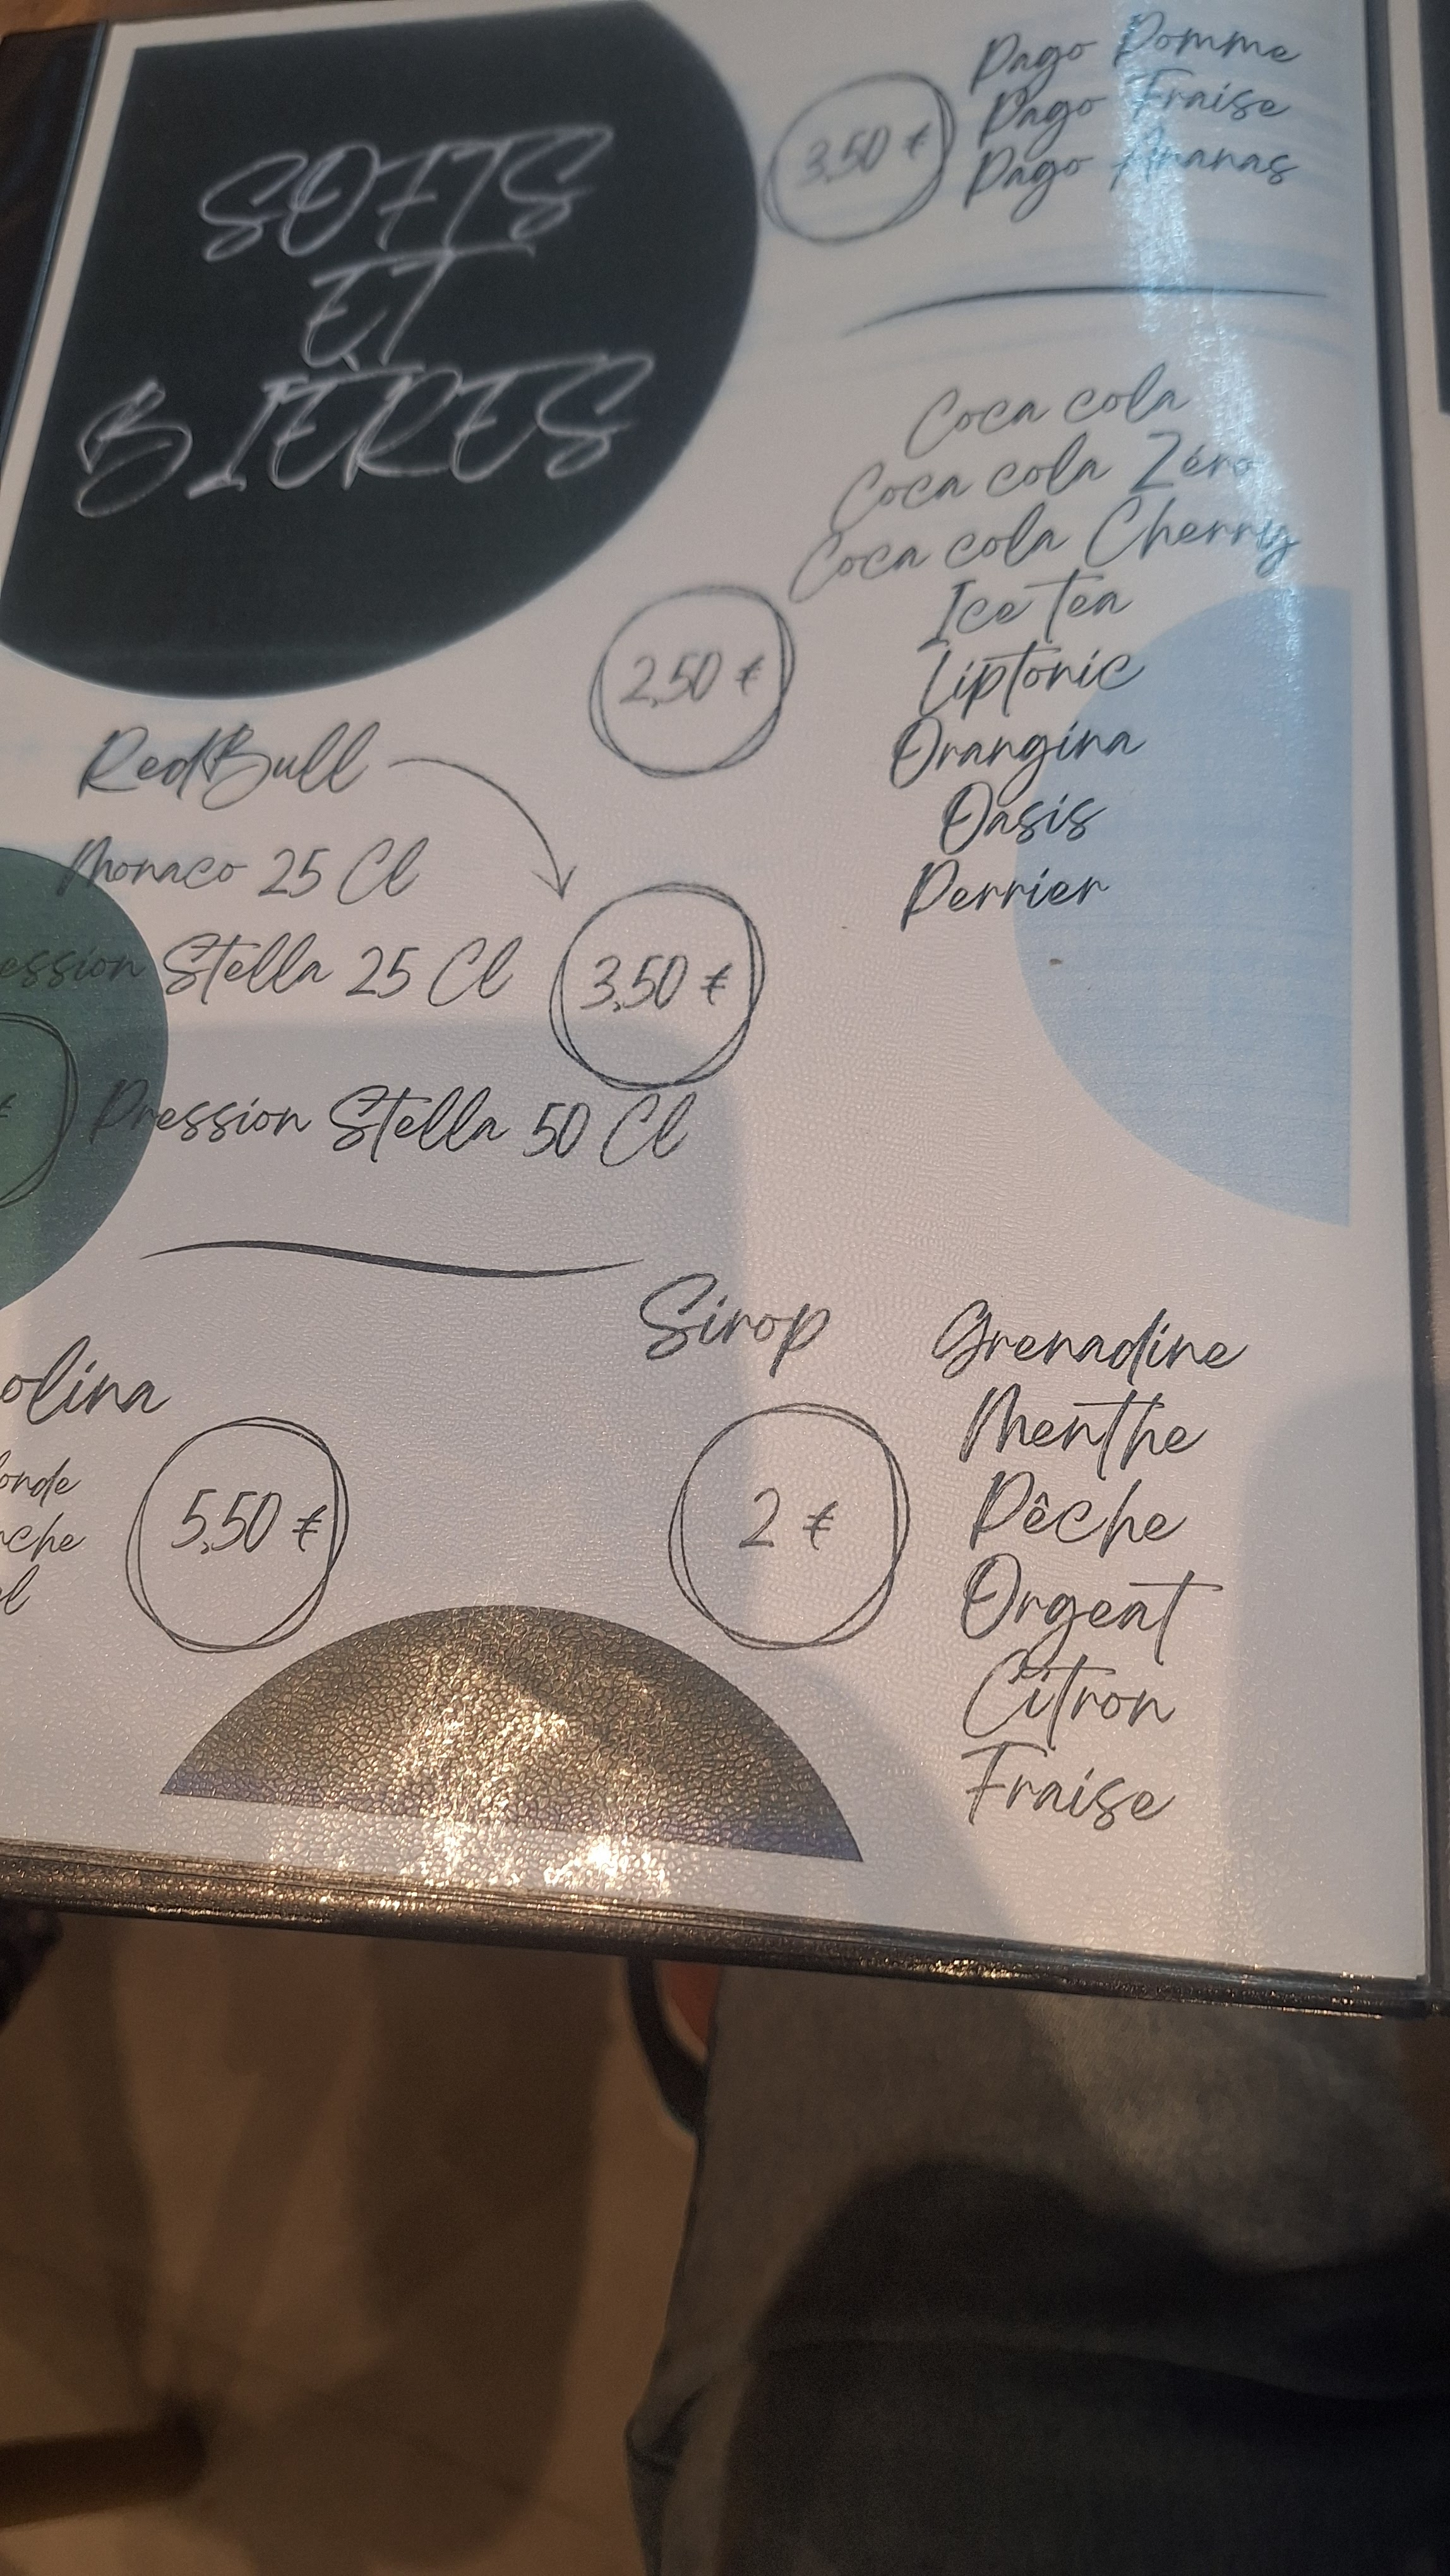 SOFTS
ET
BIÈRES
Pago Pomme
Pago Fraise
Pago Ananas
3,50 €
Coca cola
Coca cola Zéro
Coca cola Cherry
Ice Tea
Liptonic
Orangina
Oasis
Perrier
2,50 €
RedBull
Monaco 25 Cl
ession Stella 25 Cl
3,50 €
€
Pression Stella 50 Cl
Sirop
2 €
Grenadine
Menthe
Pêche
Orgeat
Citron
Fraise
olina
londe
nche
el
5,50 €